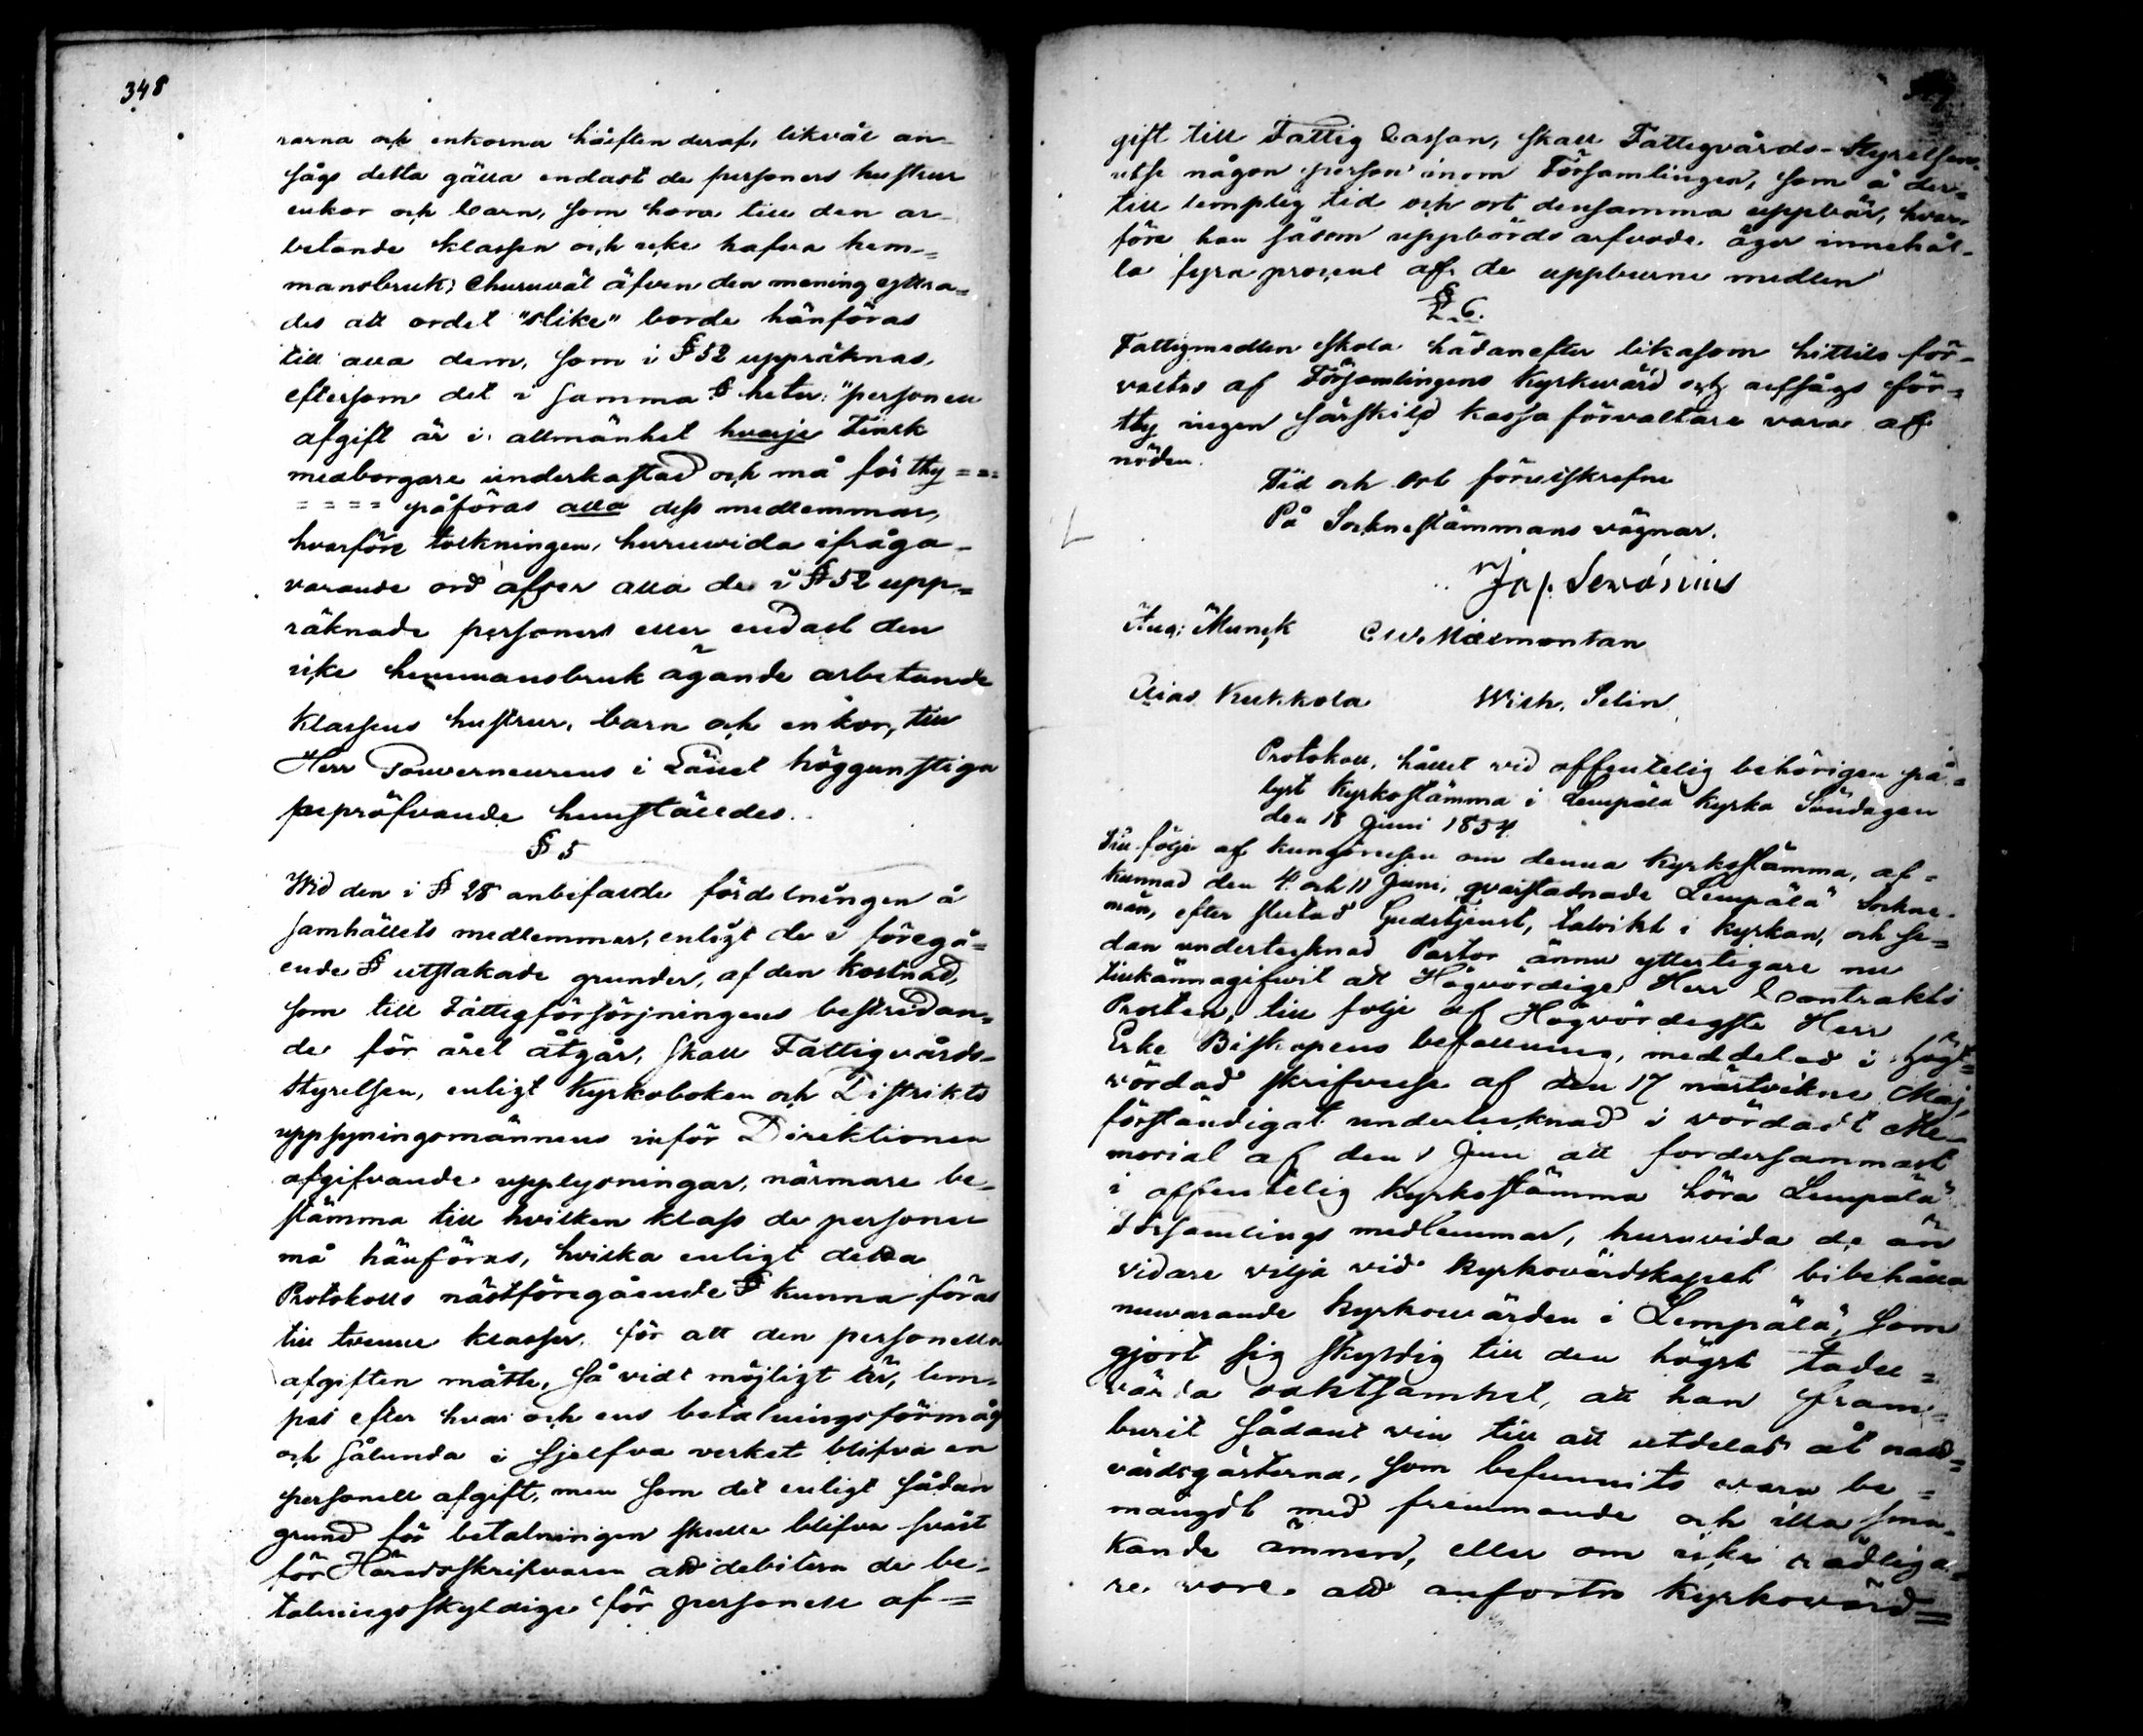 348
rarna och enkorna hälften deraf, likväl an-
sågs detta gälla endast de personers hustrur
enkor och barn, som höra till den ar-
betande klassen och icke hafva hem-
mansbruk; Churuväl äfven den mening yttra-
des att ordet "slike" borde hänföras
till alla dem, som i § 52 uppräknas,
eftersom det i samma § heter: "personell
afgift är i allmänhet hvarje Finsk
medborgare underkastad och må för thy = = =
= = = = påföras alla dess medlemmar,
hvarföre tolkningen, huruvida ifråga-
varande ord afser alla de i § 52 upp-
räknade personers eller endast den
icke hemmansbruk ägande arbetande
klassens hustrur, barn och enkor, till
Herr Gouverneurens i Länet höggunstiga
bepröfvande hemställdes.
§ 5
Wid den i § 28 anbefalde fördelningen å
samhällets medlemmar, enligt de i föregå-
ende § utstakade grunder, af den kostnad,
som till Fattigförsörjningens bestridan-
de för året åtgår, skall Fattigvårds-
Styrelsen, enligt Kyrkoboken och Distrikts
uppsyningsmännens inför Direktionen
afgifvande upplysningar, närmare be-
stämma till hvilken klass de personer
må hänföras, hvilka enligt detta
Protokolls nästföregående § kunna föras
till tvenne klasser, för att den personella
afgiften måtte, så vidt möjligt är, lem-
pas efter hvar och ens betalningsförmåg
och sålunda i sjelfva verket blifva en
personell afgift, men som det enligt sådan
grund för betalningen skulle blifva svårt
för Häradsskrifvaren att debitera de be-
talningsskyldige för personell af=
gift till Fattig Cassan, skall Fattigvårds-Styrelsen
utse någon person inom Församlingen, som å der-
till lemplig tid och ort densamma uppbär, hvar-
före han såsom uppbörds arfvode äger innehål-
la fyra procent af de uppburne medlen
§ 6.
Fattigmedlen skola hädanefter likasom hittils för-
valtas af Församlingens Kyrkvärd och ansågs för-
thy ingen särskild kassaförvaltare vara af
nöden.
Tid och Ort förutskrefne
På Socknestämmans vägnar.
Aug: Munck C.W. Malmontan
Elias Kukkola Wilh. Selin
Protokoll, hållet vid offentelig behörigen på-
lyst Kyrkostämma i Lempäla Kyrka Söndagen
den 18 Juni 1854.
Till följe af kungörelsen om denna Kyrkostämma, af-
kunnad den 4 och 11 Juni, qvarstadnade Lempälä Sockne-
män, efter slutad Gudstjenst, talrikt i kyrkan, och se-
dan undertecknad Pastor ännu ytterligare nu
tillkännagifvit att Högvördige Herr Contrakts
Prosten, till följe af Högvördigste Herr
Erke Biskopens befallning, meddelad i högt-
vördad skrifvelse af den 17 nästvikne Maj,
förständigat undertecknad i vördadt Me-
morial af den 1 Juni att fordersammast
i offentelig Kyrkostämma höra Lempälä
Församlings medlemmar, huruvida de än
vidare vilja vid kyrkovärdskapet bibehålla
nuvarande kyrkovärden i Lempälä, som
gjort sig skyldig till den högst tadel-
värda vaktsamhet, att han fram-
burit sådant vin till att utdelas åt natt-
vardsgästerna, som befunnits vara be-
mängdt med fremmande och illa sma-
kande ämnen, eller om icke rådliga-
re vore att anförtro kyrkovärd=